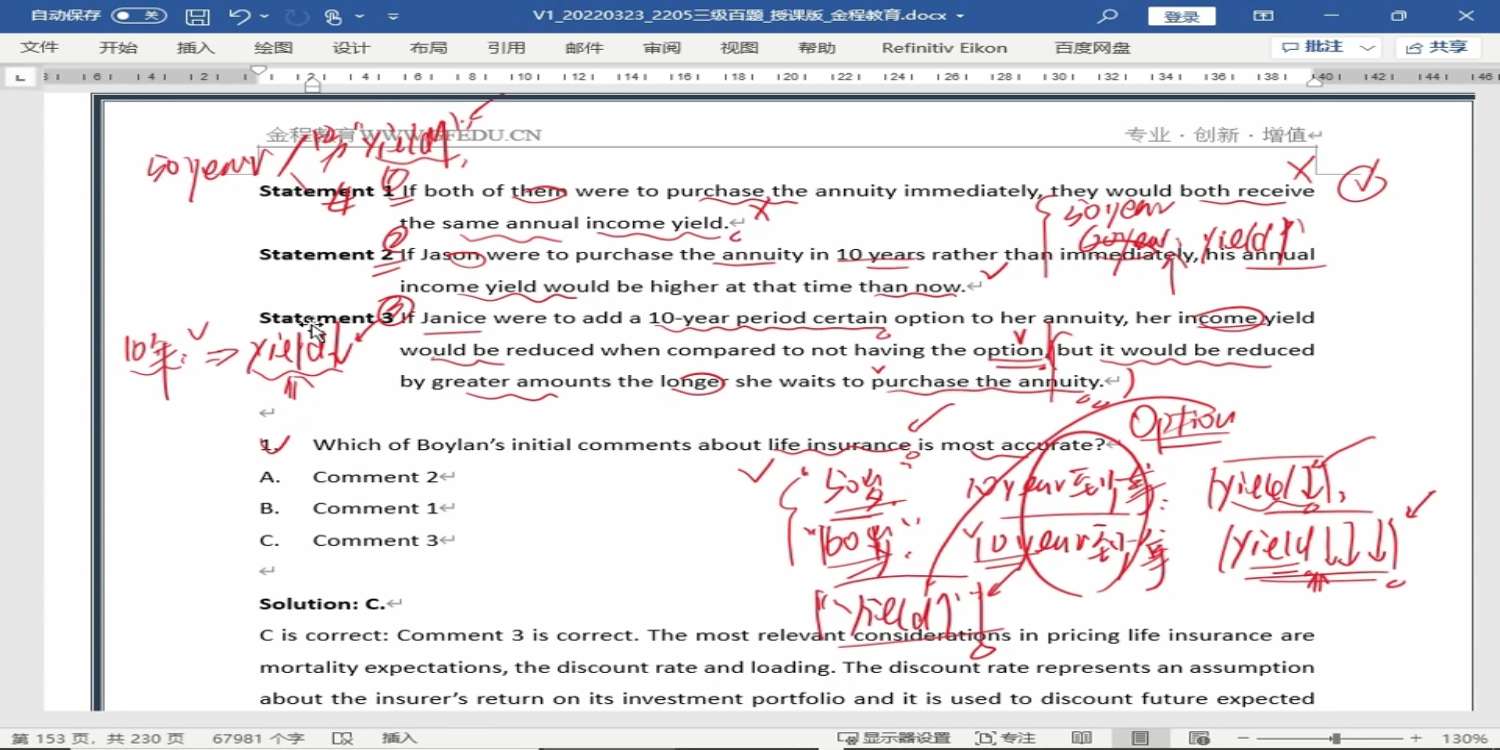 自动保存 关 V1_20220323_2205三级百题_授课版_金程教育.docx 登录
文件 开始 插入 绘图 设计 布局 引用 邮件 审阅 视图 帮助 Refinitiv Eikon 百度网盘 批注 共享
金程教育 WWW.GFEDU.CN 专业 · 创新 · 增值
50year / yield
Statement 1 If both of them were to purchase the annuity immediately, they would both receive
the same annual income yield.
50year
60year, yield↑
Statement 2 If Jason were to purchase the annuity in 10 years rather than immediately, his annual
income yield would be higher at that time than now.
Statement 3 If Janice were to add a 10-year period certain option to her annuity, her income yield
10年: ⇒ yield↓
would be reduced when compared to not having the option, but it would be reduced
by greater amounts the longer she waits to purchase the annuity.
Option
1. Which of Boylan's initial comments about life insurance is most accurate?
A. Comment 2
50岁 10year到少拿: yield↓
B. Comment 1
C. Comment 3
60岁: 10year到少拿 yield↓↓↓
Solution: C.
yield↑
C is correct: Comment 3 is correct. The most relevant considerations in pricing life insurance are
mortality expectations, the discount rate and loading. The discount rate represents an assumption
about the insurer's return on its investment portfolio and it is used to discount future expected
第 153 页，共 230 页 67981 个字 插入 显示器设置 专注 130%